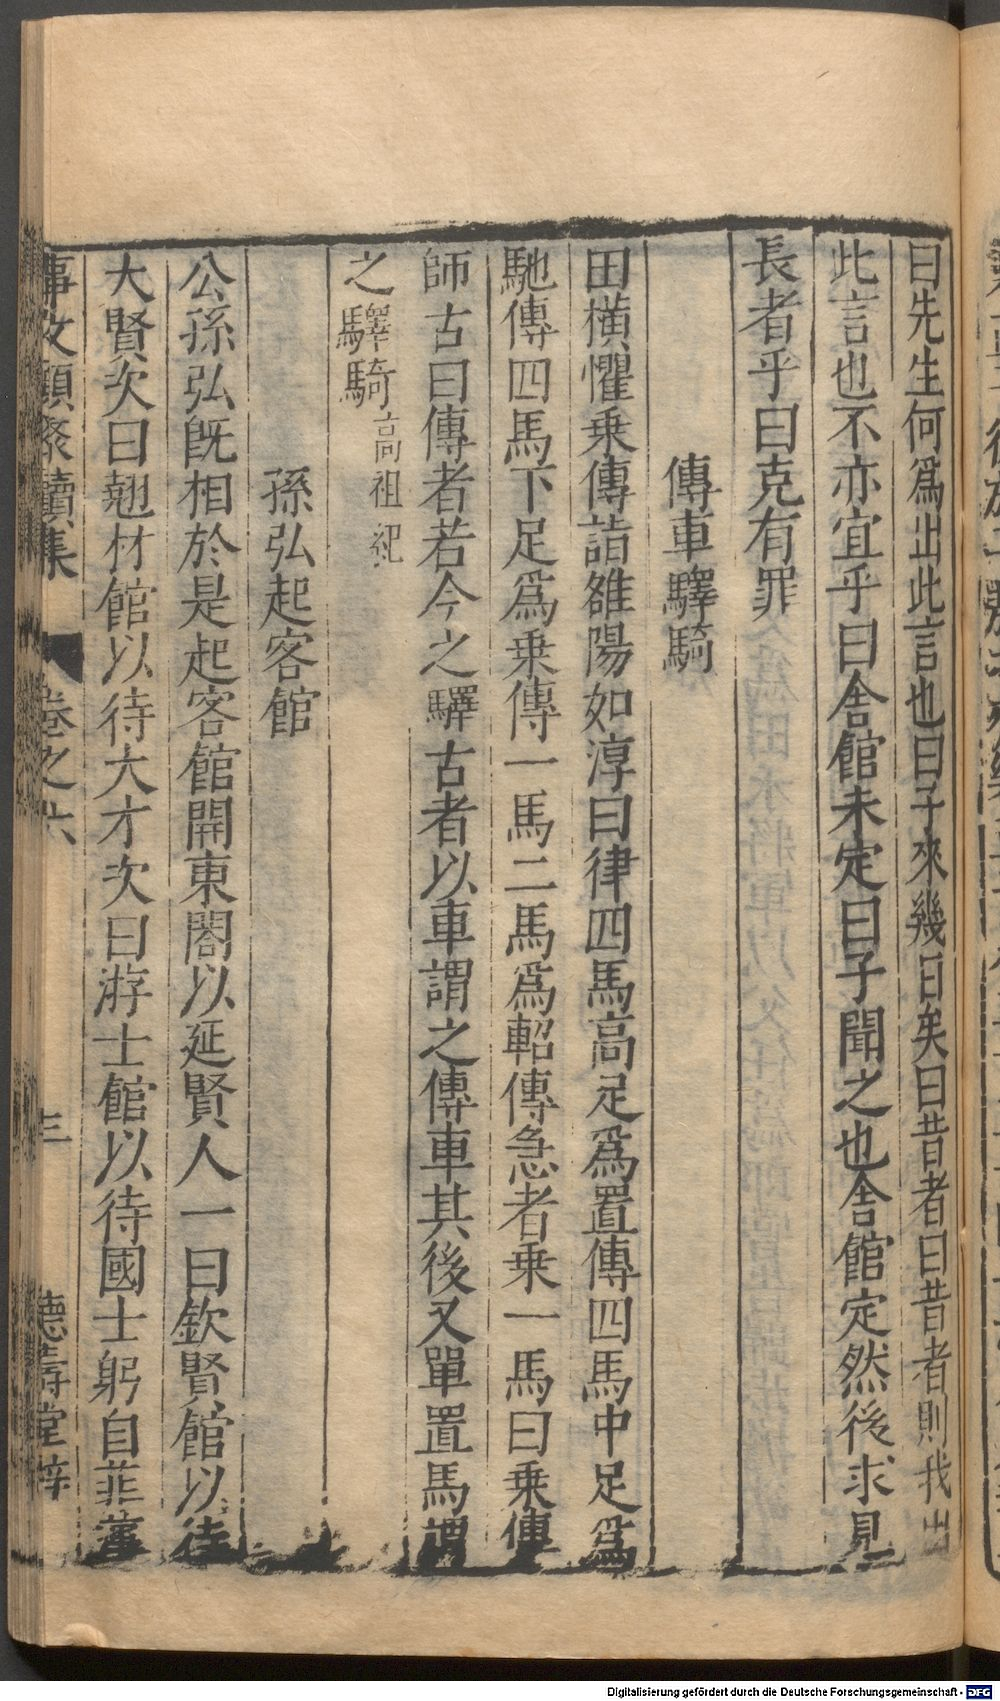 曰先生何爲出此言也曰子來幾日矣曰昔者曰昔者則我出
此言也不亦宜乎曰舍館未定曰子聞之也舍館定然後求見
長者乎曰克有罪
傳車驛騎
田橫懼乗傳詣雒陽如淳曰律四馬高足爲置傳四馬中足爲
馳傳四馬下足爲乗傳一馬二馬爲軺傳急者乗一馬曰乗傳
師古曰傳者若今之驛古者以車謂之傳車其後又單置馬謂
之驛騎高祖紀
孫弘起客館
公孫弘旣相於是起客館開東閤以延賢人一曰欽賢館以待
大賢次曰翹材館以待大才次曰游士館以待國士躬自菲薄
事文類聚續集 卷之六 三 德壽堂梓
Digitalisierung gefördert durch die Deutsche Forschungsgemeinschaft - DFG